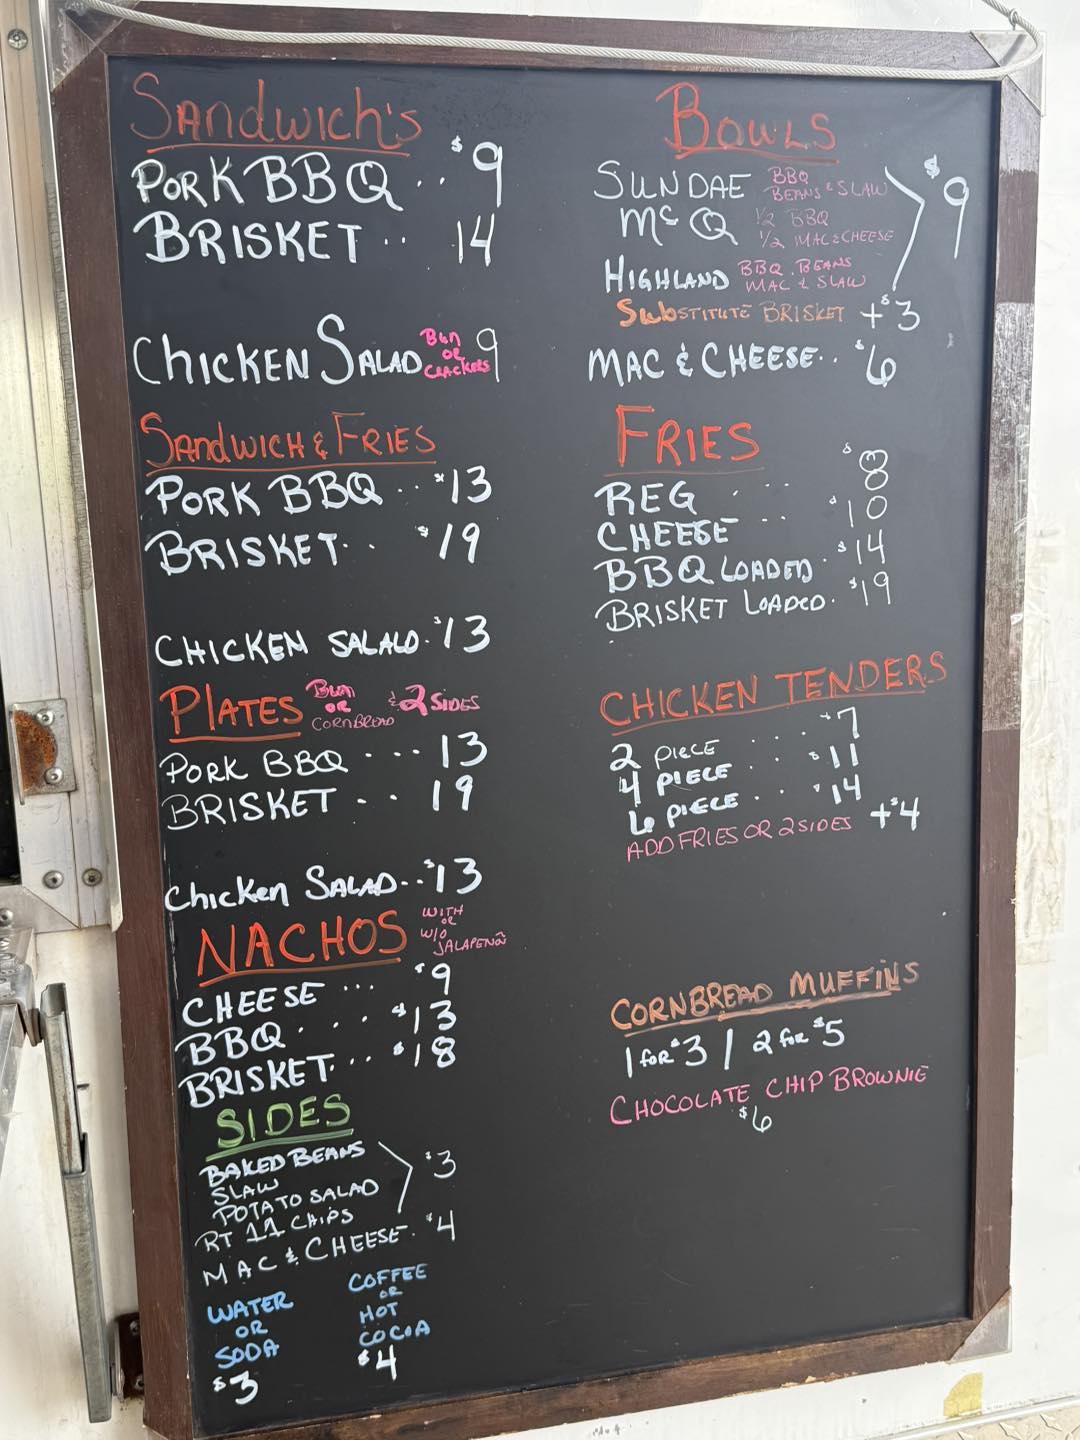 Sandwich's
PORK BBQ .. $9
BRISKET .. 14
CHICKEN SALAD BUN OR CRACKERS 9
SANDWICH & FRIES
PORK BBQ .. $13
BRISKET .. $19
CHICKEN SALALD . $13
PLATES BUN OR CORNBREAD & 2 SIDES
PORK BBQ .... 13
BRISKET .. 19
Chicken SALAD .. $13
NACHOS WITH OR W/O JALAPENO
CHEESE ... $9
BBQ .... $13
BRISKET ... $18
SIDES
BAKED BEANS
SLAW
POTATO SALAD
RT 11 CHIPS
$3
MAC & CHEESE . $4
WATER
OR
SODA
$3
COFFEE
OR
HOT
COCOA
$4
BOWLS
SUNDAE BBQ BEANS & SLAW
McQ 1/2 BBQ 1/2 MAC & CHEESE
HIGHLAND BBQ. BEANS MAC & SLAW
$9
SubSTITUTE BRISKET +$3
MAC & CHEESE .. $6
FRIES
REG ... $8
CHEESE .. $10
BBQ LOADED . $14
BRISKET LOADED . $19
CHICKEN TENDERS
2 PIECE .... $7
4 PIECE .. $11
6 PIECE .. $14
ADD FRIES OR 2 SIDES +$4
CORNBREAD MUFFINS
1 for $3 / 2 for $5
CHOCOLATE CHIP BROWNIE
$6